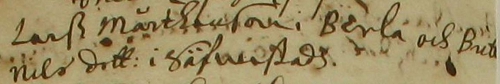 Larß Mårthenson i Berla och Britt
Nils dott: i Säfwestad.